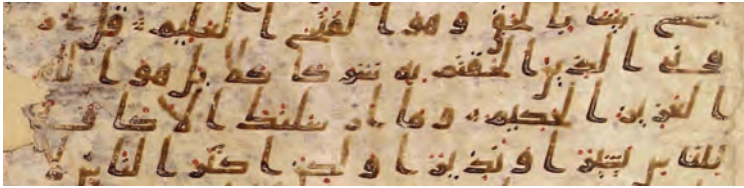 يفتح بيننا بالحق و هو ا لفتح ا لعليم قل ا ر
و نى ا لذين ا لحقتم به شر كا كلا بل هو ا لله
ا لعز يز ا لحكيم و ما ا ر سلنك ا لا كا فة
للنا س بشير ا و نذ ير ا و لكن ا كثر ا لنا س